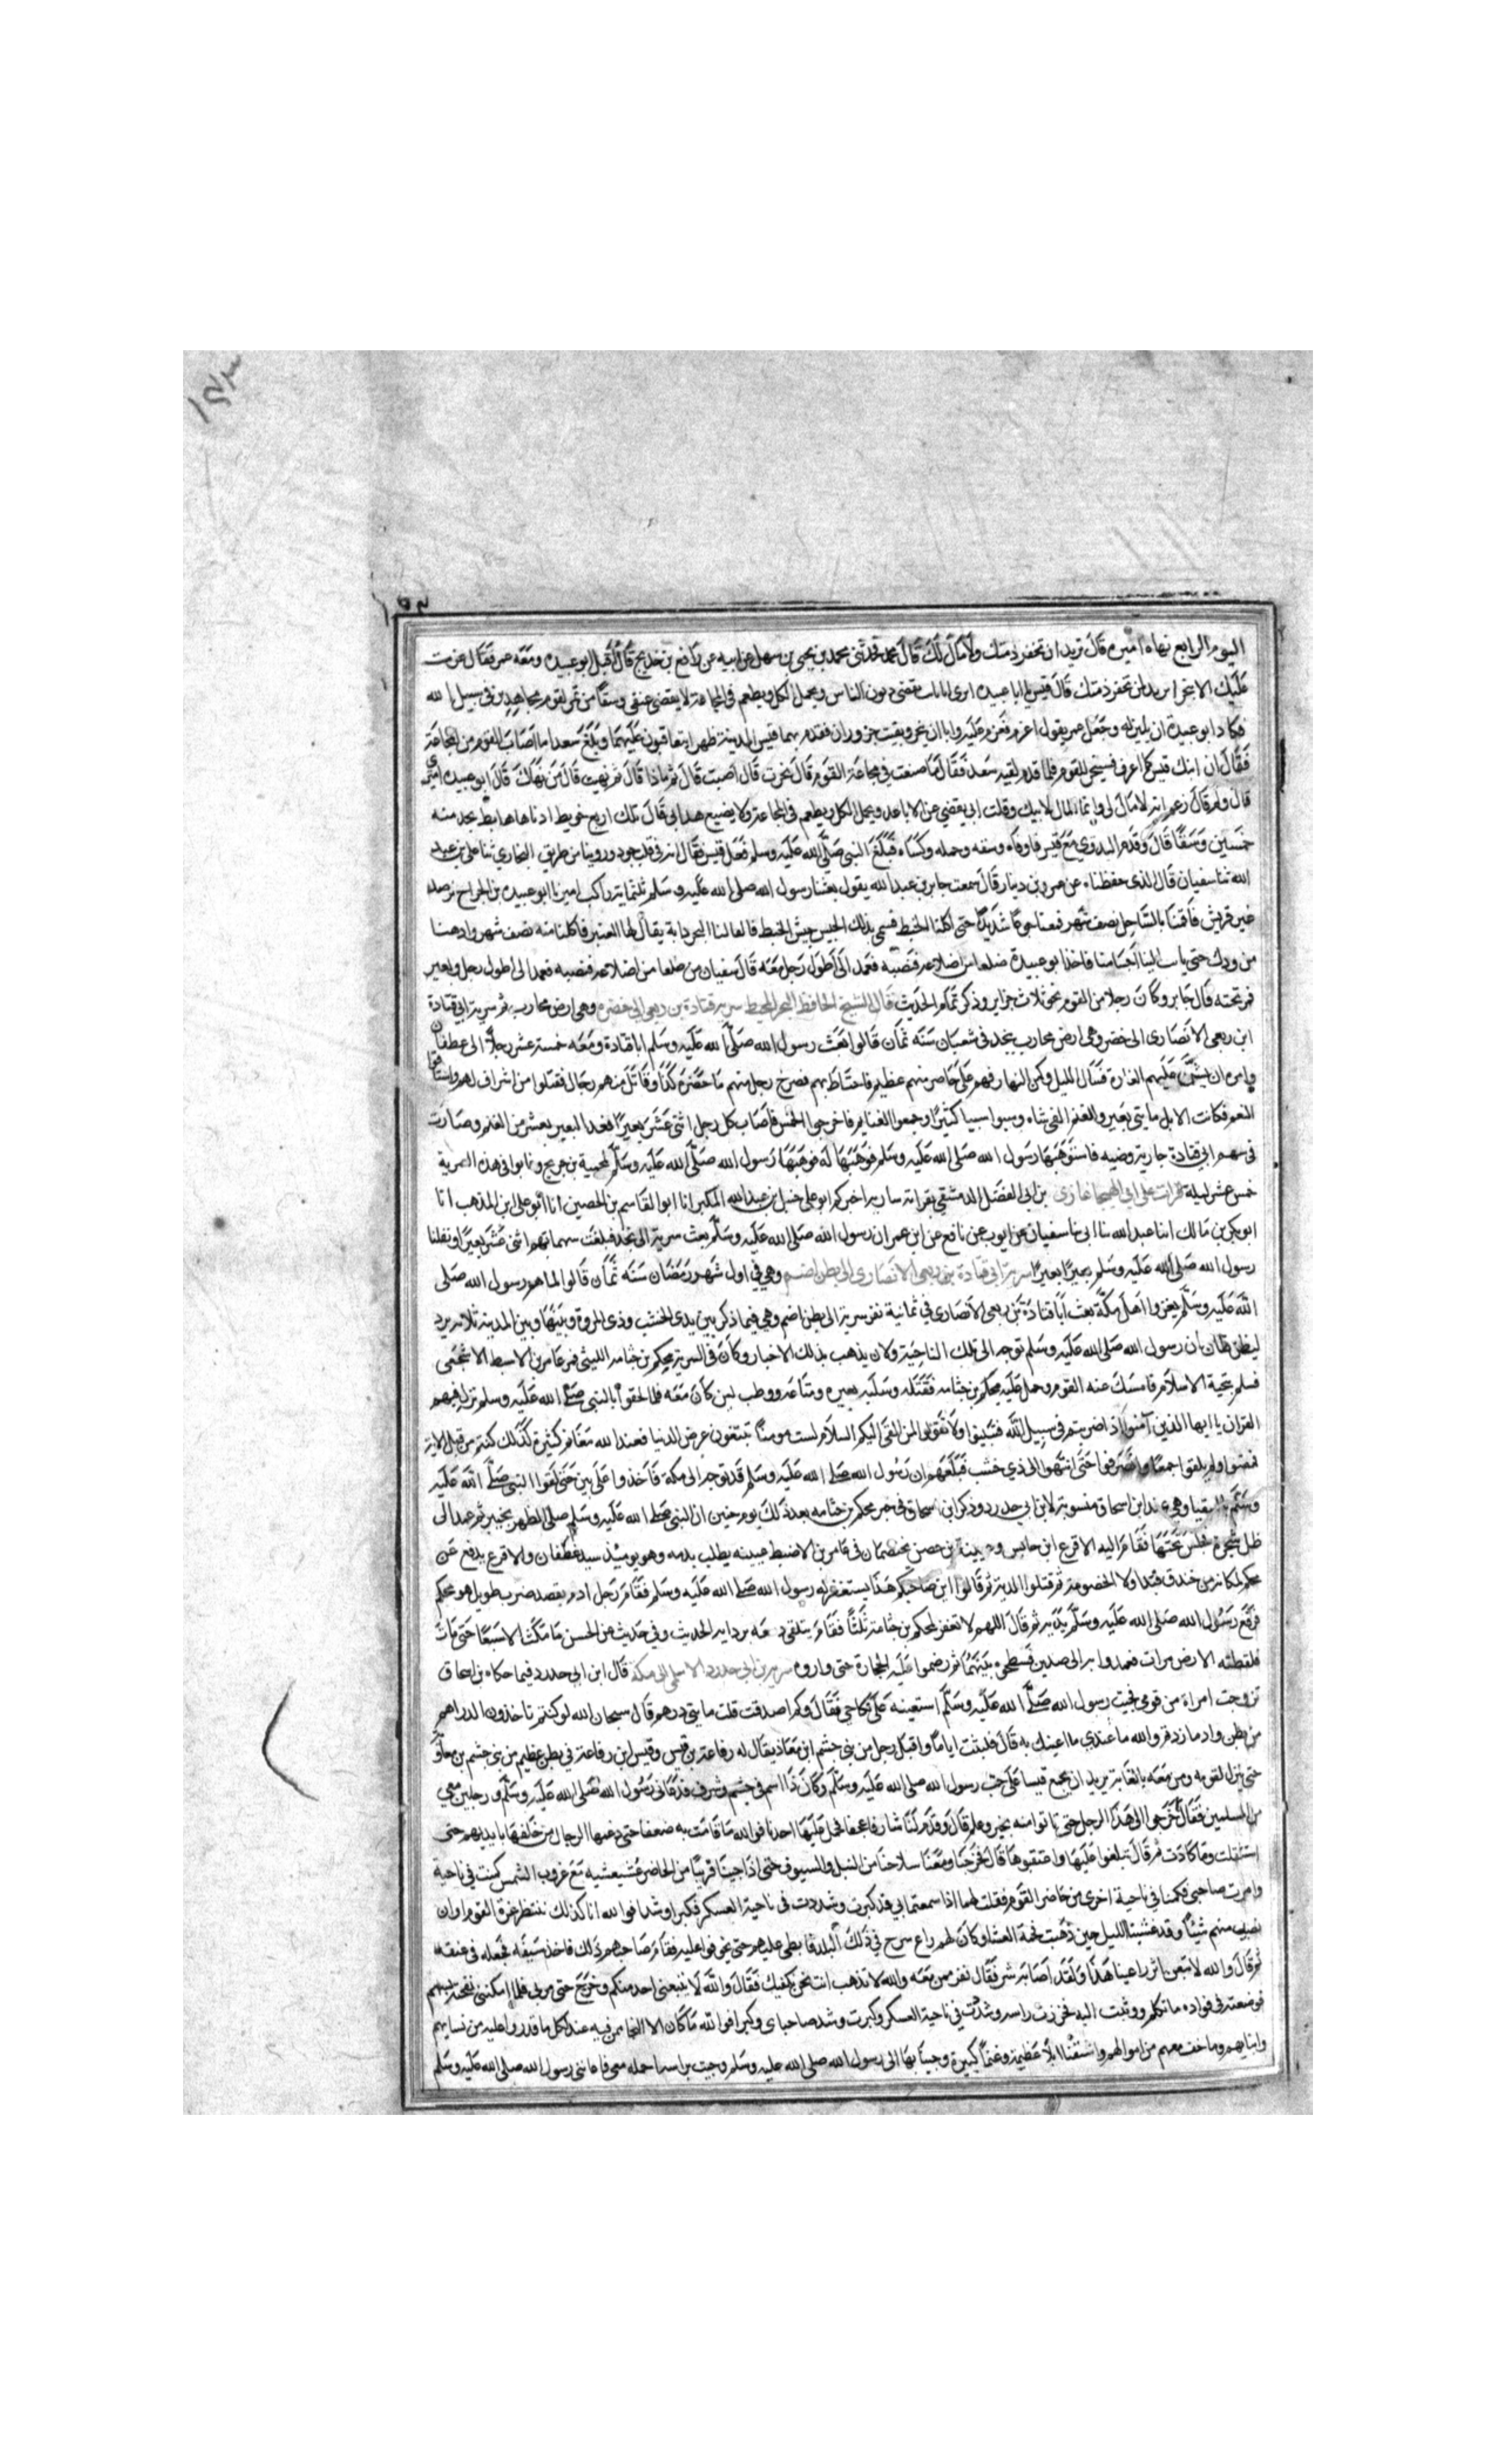 ١٩٣
١٩٣
اليوم الرابع نهاه اميره قال تريد ان تخفر ذمتك ولا مال لك قال محمد فحدثني محمد بن يحيى بن سهل عن ابيه عن رافع بن خديج قال اقبل ابو عبيده ومعه عمر فقال عزمت
عليك الا تنحر اتريد ان تخفر ذمتك قال قيس يا ابا عبيده اترى ابا ثابت يقضي ديون الناس ويحمل الكل ويطعم في المجاعة لا يقضي عني وسقا من تمر لقوم مجاهدين في سبيل الله
فكاد ابو عبيدة ان يلين له وجعل عمر يقول اعزم فعزم عليه وابا ان ينحر وبقيت جزوران فقدم بهما قيس المدينة ظهرا يتعاقبون عليهما وبلغ سعدا ما اصاب القوم من المجاعة
فقال ان يك قيس كما اعرف فسينحر للقوم فلما قدم لقيه سعد فقال ما صنعت في مجاعة القوم قال نحرت قال اصبت قال ثم ماذا قال ثم نهيت قال من نهاك قال ابو عبيده اميري
قال ولم قال زعم انه لا مال لي وانما المال لابيك وقلت ابي يقضي عن الاباعد ويحمل الكل ويطعم في المجاعة ولا يضيع هذا بي قال تلك اربع حوايط ادناها حايط يجد منه
خمسين وسقا قال وقدم البدوي مع قيس فاوفاه وسقه وحمله وكساه فبلغ النبي صلى الله عليه وسلم فعل قيس فقال انه في قلب جود وروينا من طريق البخاري ثنا علي بن عبد
الله ثنا سفيان قال الذي حفظناه من عمرو بن دينار قال سمعت جابر بن عبد الله يقول بعثنا رسول الله صلى الله عليه وسلم ثلثماية راكب اميرنا ابو عبيده بن الجراح نرصد
عير قريش فاقمنا بالساحل نصف شهر فاصابنا جوع شديد حتى اكلنا الخبط فسمي بذلك الجيش جيش الخبط فالقا لنا البحر دابة يقال لها العنبر فاكلنا منه نصف شهر وادهنا
من ودكه حتى ثابت الينا اجسامنا فاخذ ابو عبيدة ضلعا من اضلاعه فنصبه فعمد الى اطول رجل معه قال سفيان مرة ضلعا من اضلاعه فنصبه فعمد الى اطول رجل وبعير
فمر تحته قال جابر وكان رجل من القوم نحر ثلاث جزاير وذكر تمام الحديث قال الشيخ الحافظ سرية قتادة بن ربعي الى خضرة وهي ارض محارب ثم سرية ابي قتادة
ابن ربعي الانصارى الى خضره وهي ارض محارب بنجد في شعبان سنة ثمان قالوا بعث رسول الله صلى الله عليه وسلم ابا قتادة ومعه خمسة عشر رجلا الى غطفان
وامره ان يشن عليهم الغارة فسار الليل وكمن النهار فهجم على حاضر منهم عظيم فاحاط بهم فصرخ رجل منهم يا خضرة وقاتل منهم رجال فقتلوا من اشراف لهم واستاقوا
النعم فكانت الابل مايتي بعير والغنم الفي شاه وسبوا سبيا كثيرا وجمعوا الغنايم فاخرجوا الخمس فاصاب كل رجل اثنى عشر بعيرا فعدل البعير بعشر من الغنم وصارت
في سهم ابي قتادة جارية وضيه فاستوهبها رسول الله صلى الله عليه وسلم فوهبها له فوهبها رسول الله صلى الله عليه وسلم لمحمية بن جزء وغابوا في هذه السرية
خمس عشر ليلة قرات على ابي الهيجا غازي بن ابي الفضل الدمشقي بقراءة اخبركم ابو علي حنبل بن عبد الله المكبر انا ابو القاسم بن الحصين انا ابو علي ابن المذهب انا
ابو بكر بن مالك انبا عبد الله ثنا ابي ثنا سفيان عن ايوب عن نافع عن ابن عمر ان رسول الله صلى الله عليه وسلم بعث سرية الى نجد فبلغت سهمانهم اثنى عشر بعيرا ونفلنا
رسول الله صلى الله عليه وسلم بعيرا بعيرا سرية ابي قتادة بن ربعي الانصارى الى بطن اضم وهي في اول شهر رمضان سنه ثمان قالوا لما هم رسول الله صلى
الله عليه وسلم بغزو اهل مكة بعث ابا قتادة بن ربعي الانصارى في ثمانية نفر سرية الى بطن اضم وهي فيما ذكر بين ذي الخشب وذي المروة وبينها وبين المدينة ثلاثة برد
ليظن ظان ان رسول الله صلى الله عليه وسلم توجه الى تلك الناحية ولان يذهب بذلك الاخبار وكان في السرية محلم بن جثامه الليثي فمر عامر بن الاضبط الاشجعي
فسلم بتحية الاسلام فامسك عنه القوم وحمل عليه محلم بن جثامه فقتله وسلبه بعيره ومتاعه ووطب لبن كان معه فلما لحقوا بالنبي صلى الله عليه وسلم نزل فيهم
القران يا ايها الذين آمنوا اذا ضربتم في سبيل الله فتبينوا ولا تقولوا لمن القى اليكم السلام لست مومنا تبتغون عرض الدنيا فعند الله مغانم كثيرة كذلك كنتم من قبل الاية
فمضوا ولم يلقوا جمعا وانصرفوا حتى انتهوا الى ذي خشب فبلغهم ان رسول الله صلى الله عليه وسلم قد توجه الى مكة فاخذوا على يين حتى لقوا النبي صلى الله عليه
وسلم بالسقيا وهي عند ابن اسحاق منسوبة لابن ابي حدرد وذكر ابن اسحاق في خبر محلم بن جثامه بعد ذلك يوم حنين ان النبي صلى الله عليه وسلم صلى الظهر بحنين ثم عمد الى
ظل شجرة فجلس تحتها فقام اليه الاقرع ابن حابس وعيينة بن حصن يختصمان في عامر بن الاضبط عيينه يطلب بدمه وهو يومئذ سيد غطفان والاقرع يدفع عن
محلم لمكانه من خندف ولا الخصومة ثم قبلوا الدية ثم قالوا اين صاحبكم هذا يستغفر له رسول الله صلى الله عليه وسلم فقام رجل ادم ضرب طويل هو محلم
فرفع رسول الله صلى الله عليه وسلم يديه ثم قال اللهم لا تغفر لمحلم بن جثامة ثلثا فقام يتلقى دمعه بردايه الحديث وفي حديث عن الحسن ما مكث الا سبعا حتى مات
فلفظته الارض مرات فعمدوا به الى صدين فسطحوه بينهما ثم رضموا عليه الحجارة حتى واروه سرية ابن ابي حدرد الاسلمي الى مكة قال ابن ابي حدرد فيما حكاه بن اسحاق
تزوجت امراة من قومي فجيت رسول الله صلى الله عليه وسلم استعينه على نكاحي فقال وكم اصدقت قلت مايتي درهم قال سبحان الله لو كنتم تاخذون الدراهم
من بطن واد ما زدتم والله ما عندي ما اعينك به قال فلبثت اياما واقبل رجل من بني جشم ابن معاذ يقال له رفاعة بن قيس وقيس ابن رفاعة في بطن عظيم من بني جشم بن معاوية
حتى ينزل بقومه ومن معه بالغابة يريد ان يجمع قيسا على حرب رسول الله صلى الله عليه وسلم وكان ذا اسم في جشم وشرف فدعاني رسول الله صلى الله عليه وسلم ورجلين معي
من المسلمين فقال اخرجوا الى هذا الرجل حتى تاتوا منه بخبر وعلم قال وقدم لنا شارفا عجفا فحمل عليها احدنا فوالله ما قامت به ضعفا حتى دعمها الرجال من خلفها بايديهم حتى
استقلت وما كادت ثم قال تبلغوا عليها واعتقبوها قال فخرجنا ومعنا سلاحنا من النبل والسيوف حتى اذا جينا قريبا من الحاضر عشيشيه مع غروب الشمس كمنت في ناحية
وامرت صاحبي فكمنا في ناحية اخرى من حاضر القوم فقلت لهما اذا سمعتماني قد كبرت وشددت في ناحية العسكر فكبرا وشدا فوالله انا كذلك ننتظر غرة القوم او ان
نصيب منهم شيئا وقد غشينا الليل حين ذهبت فحمة العشا وكان لهم راع سرح في ذلك البلد فابطى عليهم حتى تخوفوا عليه فقام صاحبهم ذلك فاخذ سيفه فجعله في عنقه
ثم قال والله لاتبعن اثر راعينا هذا ولقد اصابه شر فقال نفر ممن معه والله لا تذهب انت نحن نكفيك فقال والله لا يتبعني احد منكم وخرج حتى مر بي فلما امكنني نفحته بسهم
فوضعته في فواده ما تكلم ووثبت اليه فحززت راسه وشددت في ناحية العسكر وكبرت وشد صاحباى وكبرا فوالله ما كان الا النجا ممن فيه عندك بكل ما قدروا عليه من نسايهم
وابنايهم وما خف معهم من اموالهم واستقنا ابلا عظيمة وغنما كثيرة وجينا بها الى رسول الله صلى الله عليه وسلم وجيت براسه احمله معي فاعانني رسول الله صلى الله عليه وسلم